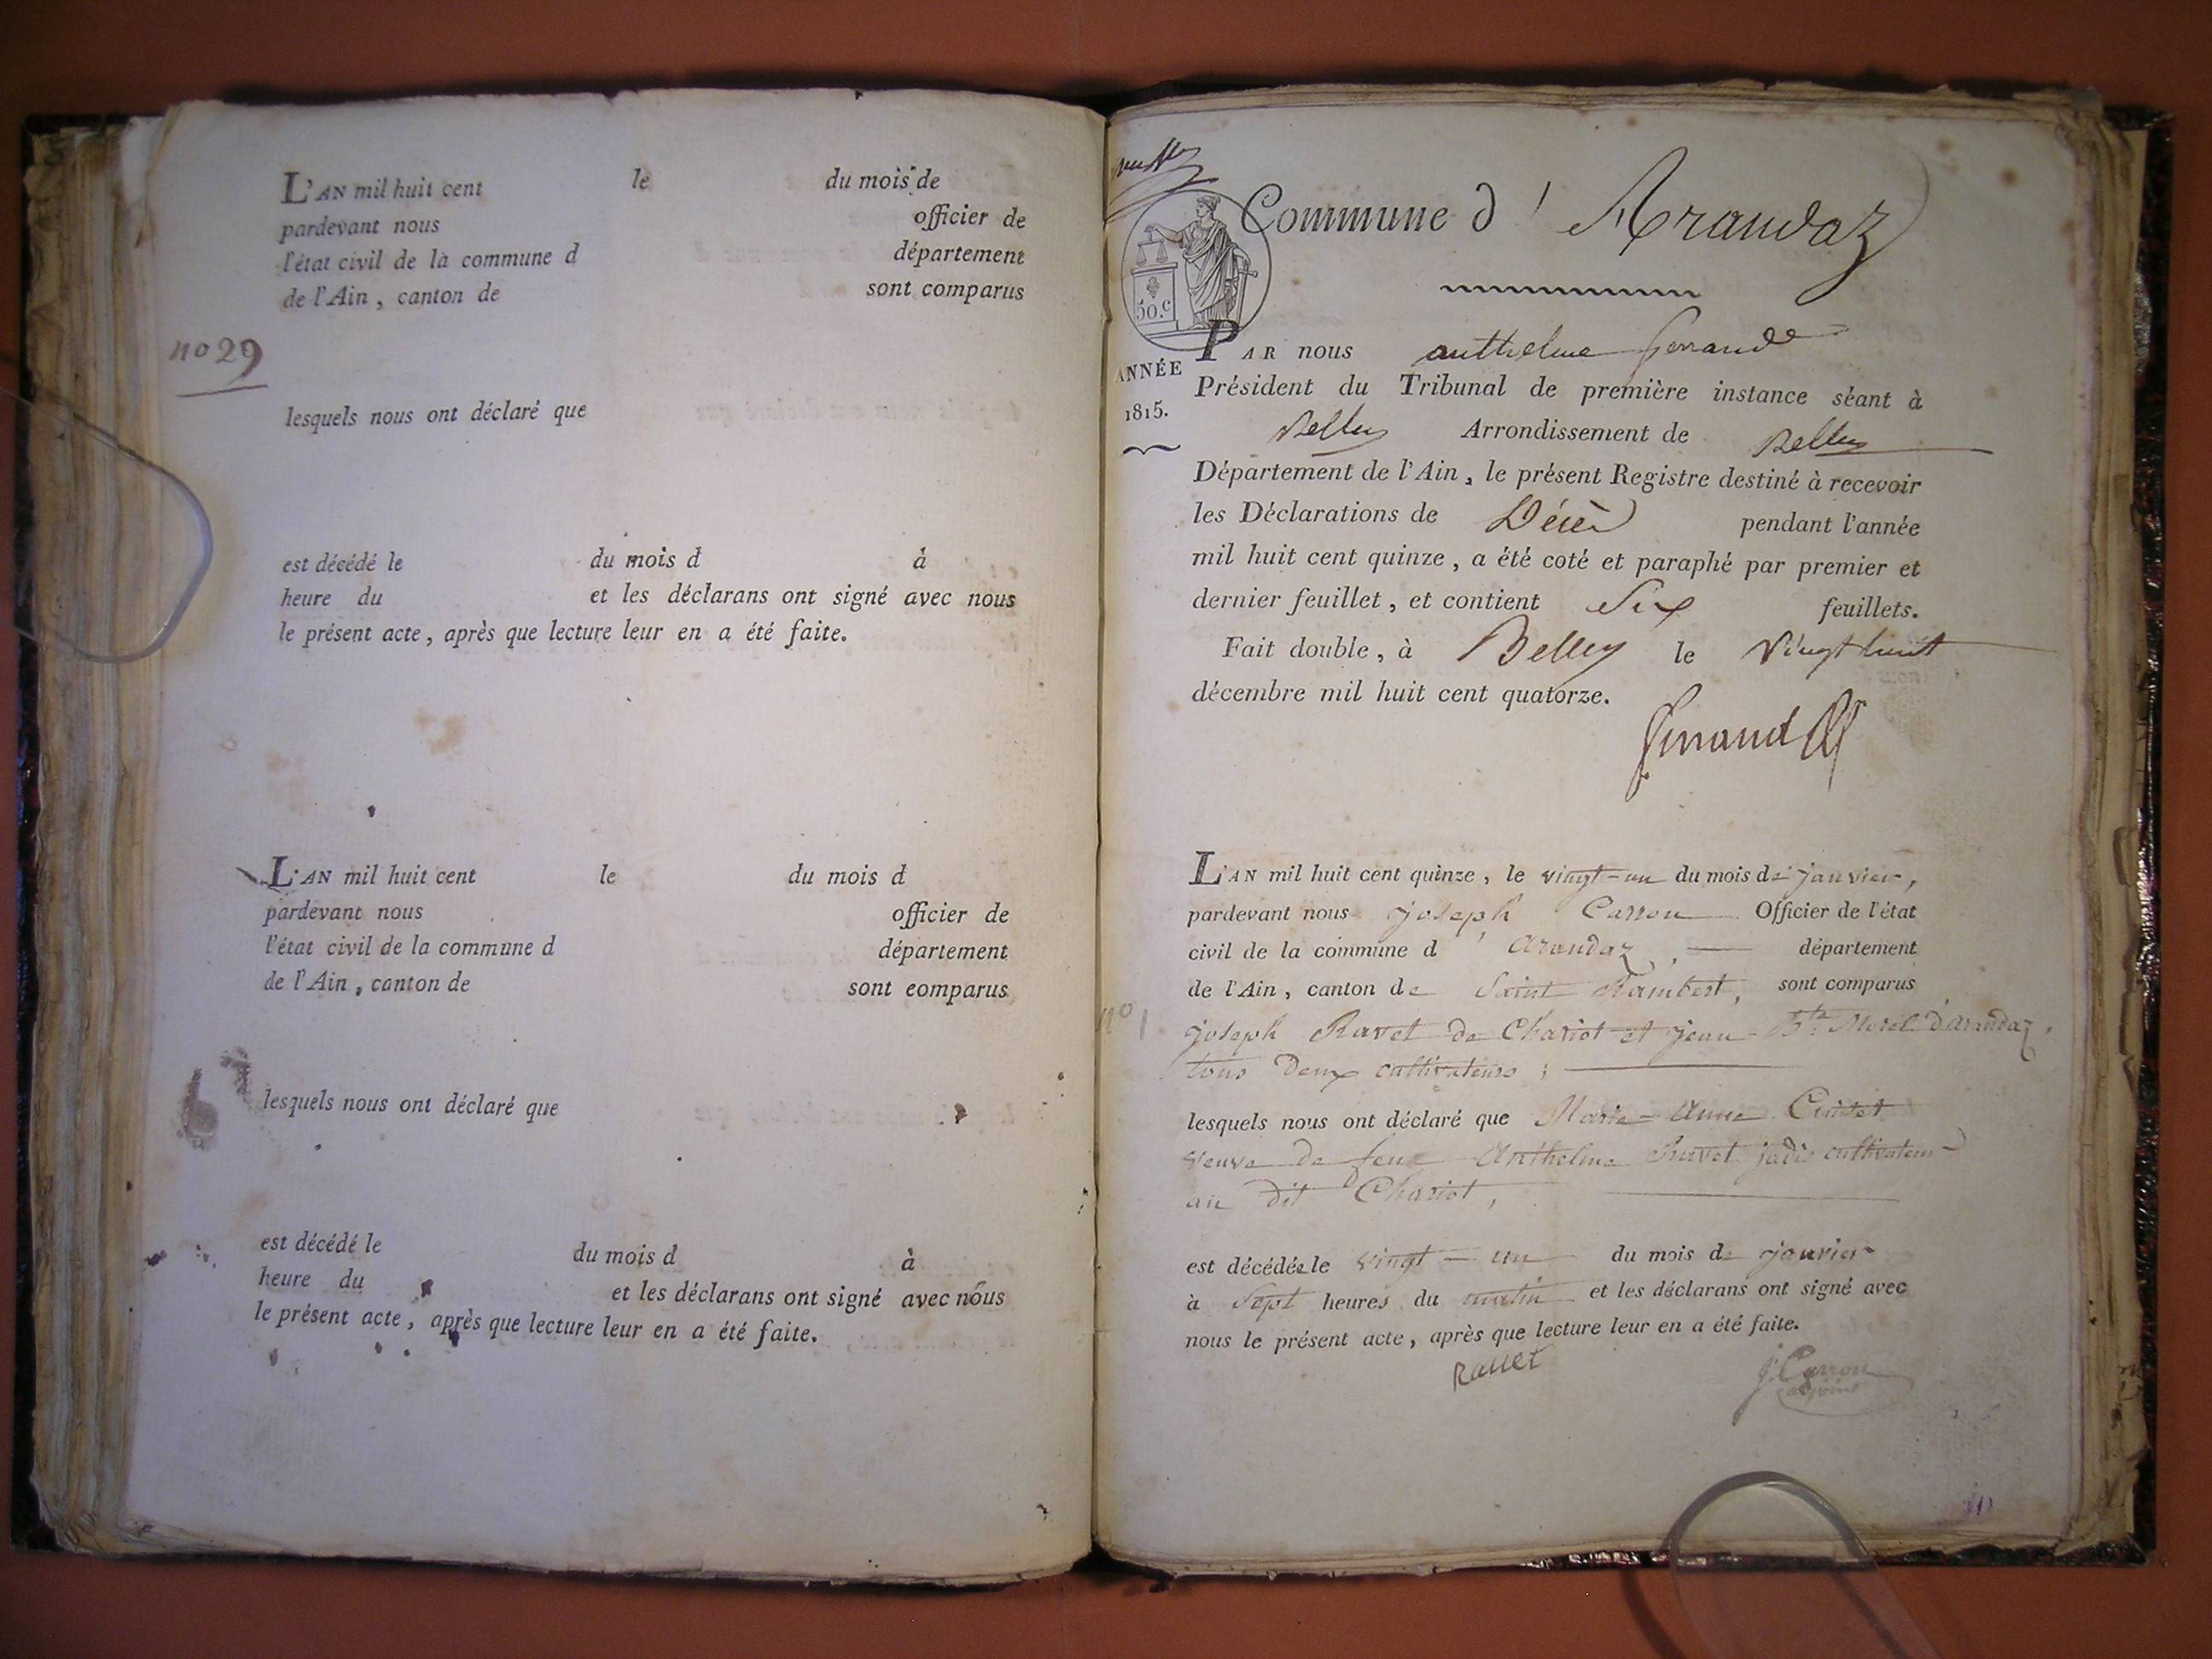 L'AN mil huit cent le du mois de
pardevant nous officier de
l'état civil de la commune d département
de l'Ain, canton de sont comparus
no 29
lesquels nous ont déclaré que
est décédé le du mois d à
heure du et les déclarans ont signé avec nous
le présent acte, après que lecture leur en a été faite.
L'AN mil huit cent le du mois d
pardevant nous officier de
l'état civil de la commune d département
de l'Ain, canton de sont comparus
lesquels nous ont déclaré que
est décédé le du mois d à
heure du et les déclarans ont signé avec nous
le présent acte, après que lecture leur en a été faite.
Commune d' Arandaz
50.c
ANNÉE
1815.
PAR nous anthelme
Président du Tribunal de première instance séant à
Belley Arrondissement de Belley
Département de l'Ain, le présent Registre destiné à recevoir
les Déclarations de Décès pendant l'année
mil huit cent quinze, a été coté et paraphé par premier et
dernier feuillet, et contient Six feuillets.
Fait double, à Belley le Vingt huit
décembre mil huit cent quatorze.
L'AN mil huit cent quinze, le vingt-un du mois de janvier,
pardevant nous joseph Carron Officier de l'état
civil de la commune d'arandaz, département
de l'Ain, canton de Saint Rambert, sont comparus
no 1
joseph Ravet de Chariot et jean Bte Morel d'arandaz,
tous deux cultivateurs;
lesquels nous ont déclaré que Marie-anne Cuiset
veuve de feu Anthelme Ravet jadis cultivateur
au dit Chariot,
est décédée le vingt-un du mois de janvier
à Sept heures du matin et les déclarans ont signé avec
nous le présent acte, après que lecture leur en a été faite.
Ravet J. Carron
adjoint